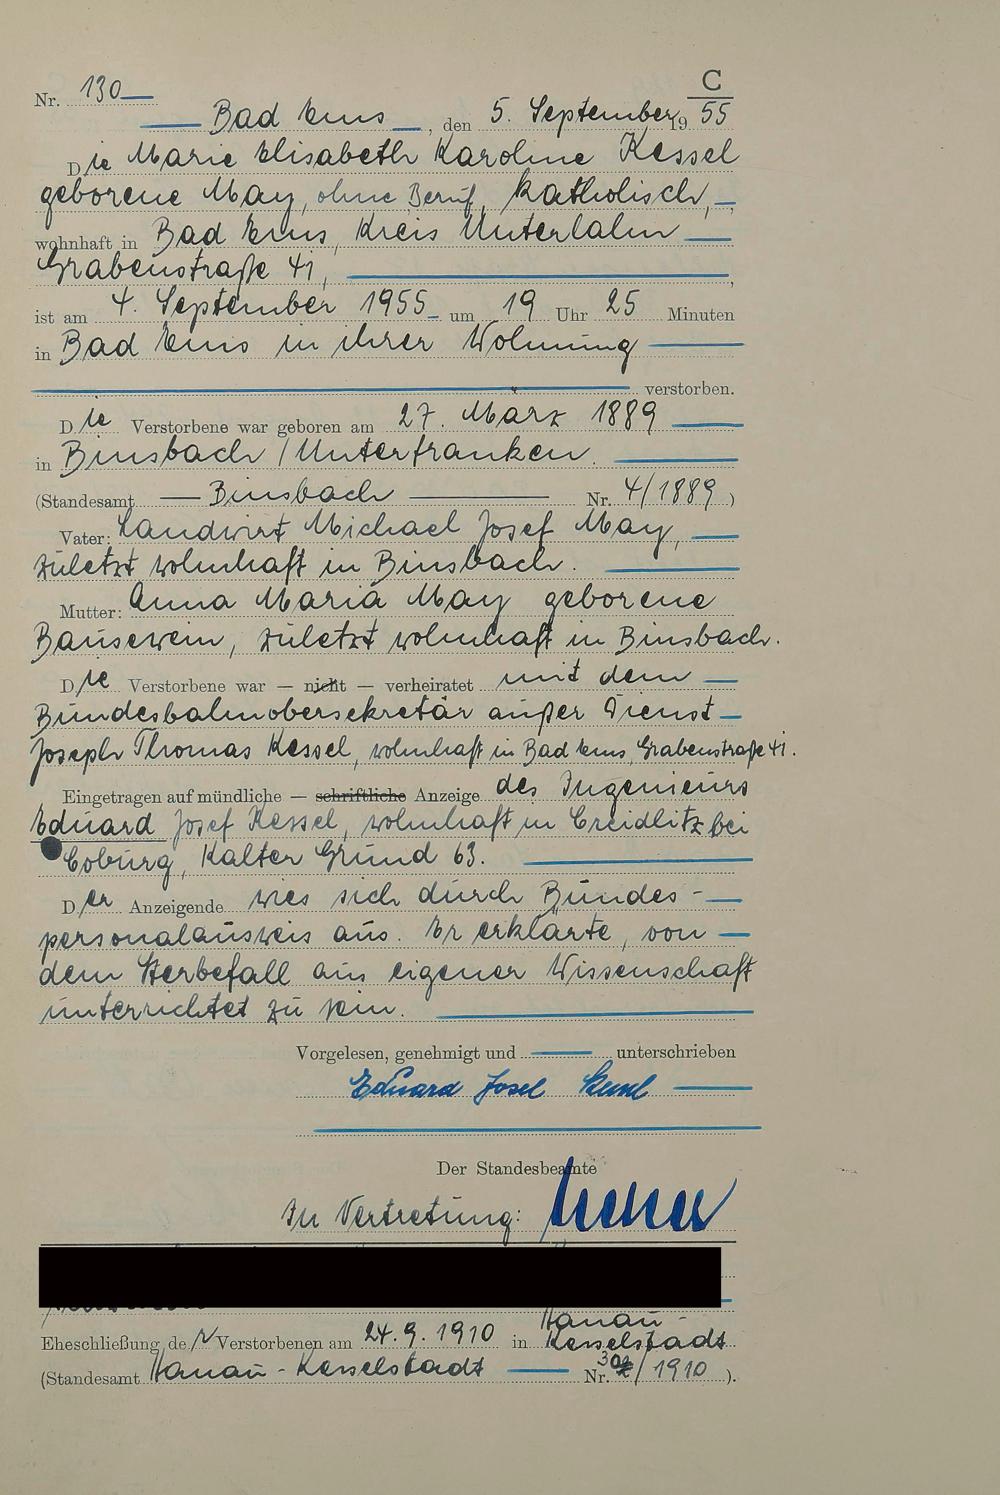 C
Nr. 130
Bad Ems, den 5. September 1955
Die Marie Elisabeth Karoline Kessel
geborene May, ohne Beruf, katholisch,
wohnhaft in Bad Ems, Kreis Unterlahn
Grabenstraße 41,
ist am 4. September 1955 um 19 Uhr 25 Minuten
in Bad Ems in ihrer Wohnung
verstorben.
Die Verstorbene war geboren am 27. März 1889
in Binsbach / Unterfranken.
(Standesamt Binsbach Nr. 4/1889)
Vater: Landwirt Michael Josef May,
zuletzt wohnhaft in Binsbach.
Mutter: Anna Maria May geborene
Bausewein, zuletzt wohnhaft in Binsbach.
Die Verstorbene war — nicht — verheiratet mit dem
Bundesbahnobersekretär außer Dienst
Joseph Thomas Kessel, wohnhaft in Bad Ems, Grabenstraße 41.
Eingetragen auf mündliche — schriftliche Anzeige des Ingenieurs
Eduard Josef Kessel, wohnhaft in Creidlitz bei
Coburg, Kalter Grund 63.
Der Anzeigende wies sich durch Bundes-
personalausweis aus. Er erklärte, von
dem Sterbefall aus eigener Wissenschaft
unterrichtet zu sein.
Vorgelesen, genehmigt und unterschrieben
Eduard Josef Kessel
Der Standesbeamte
In Vertretung:
Eheschließung der Verstorbenen am 24.9.1910 in Hanau-
Kesselstadt
(Standesamt Hanau-Kesselstadt Nr. /1910).